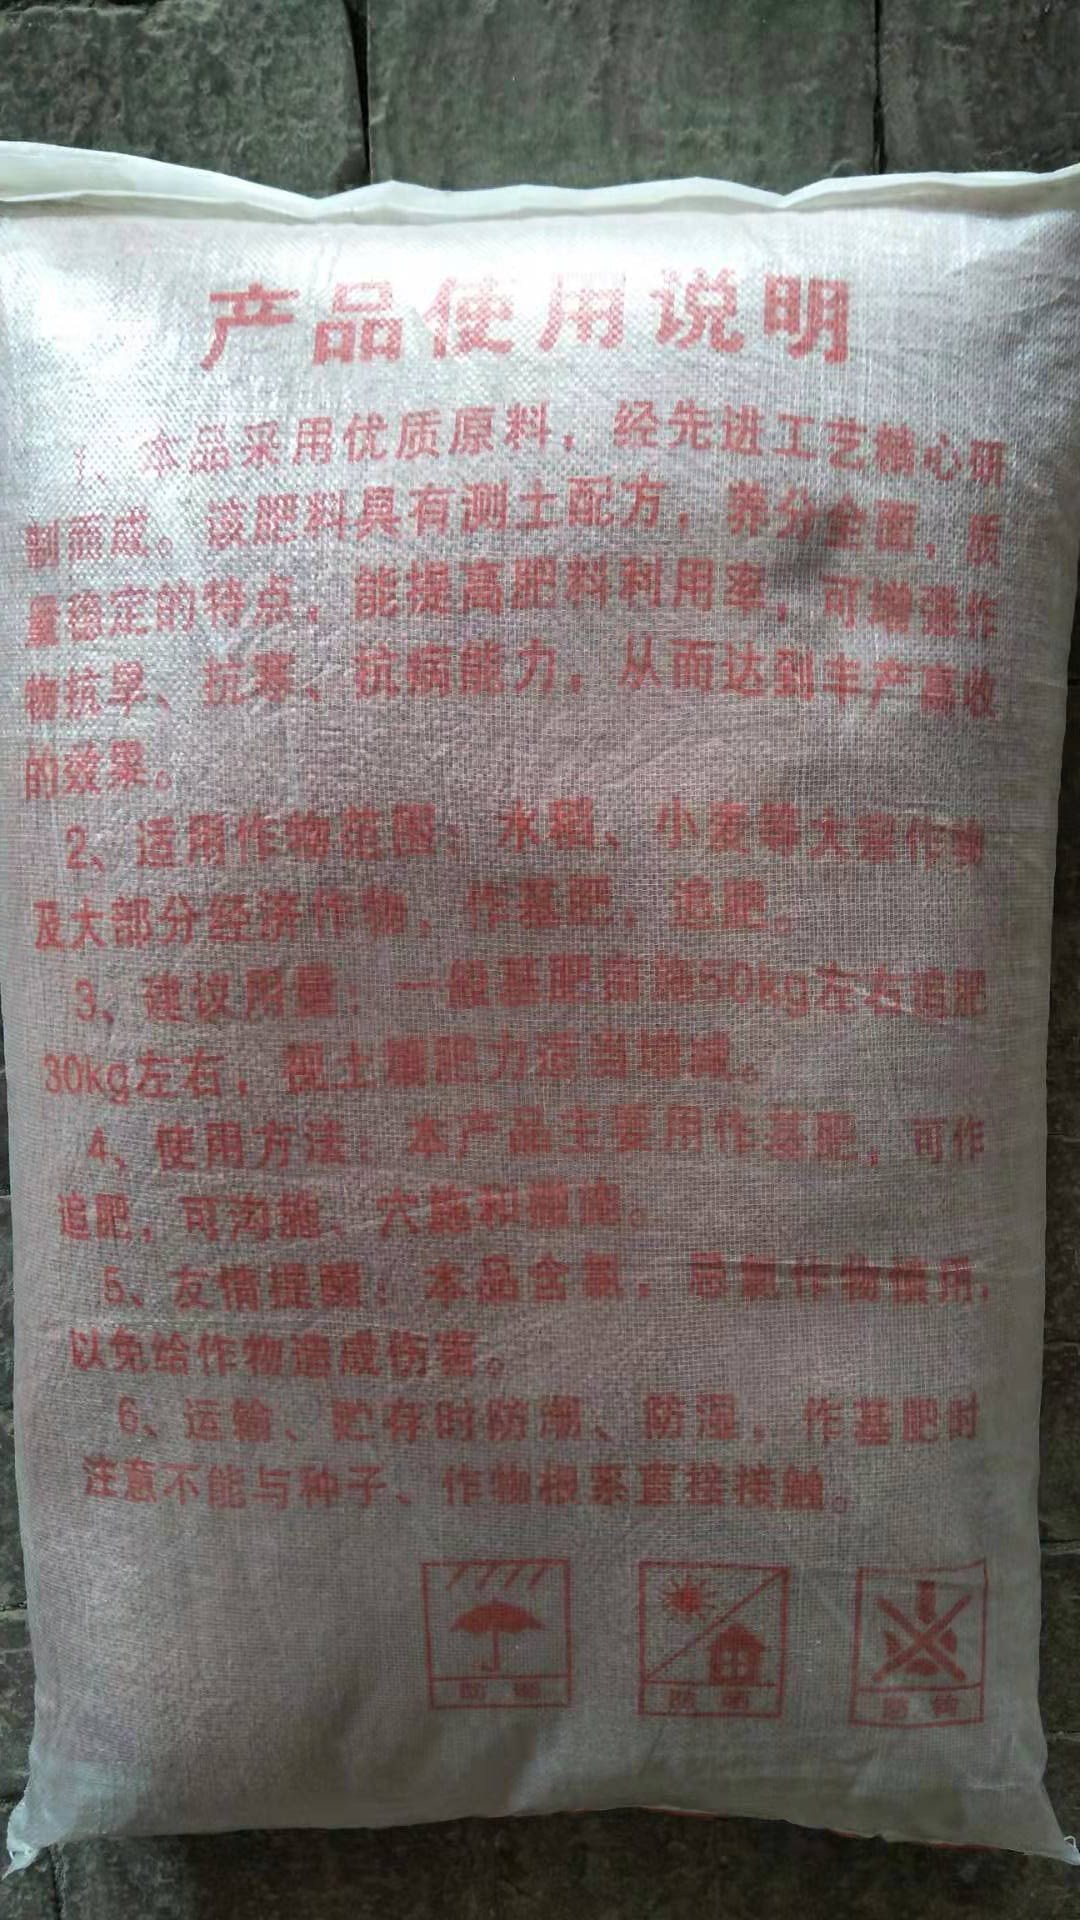 产品使用说明
1、本品采用优质原料，经先进工艺精心研
制而成。该肥料具有测土配方，养分全面，质
量稳定的特点，能提高肥料利用率，可增强作
物抗旱、抗寒、抗病能力，从而达到丰产高收
的效果。
2、适用作物范围：水稻、小麦等大田作物
及大部分经济作物，作基肥，追肥。
3、建议用量：一般基肥亩施50kg左右追肥
30kg左右，视土壤肥力适当增减。
4、使用方法：本产品主要用作基肥，可作
追肥，可沟施、穴施和撒施。
5、友情提醒：本品含氯，忌氯作物慎用，
以免给作物造成伤害。
6、运输、贮存时防潮、防湿，作基肥时
注意不能与种子、作物根系直接接触。
防 晒
防 钩